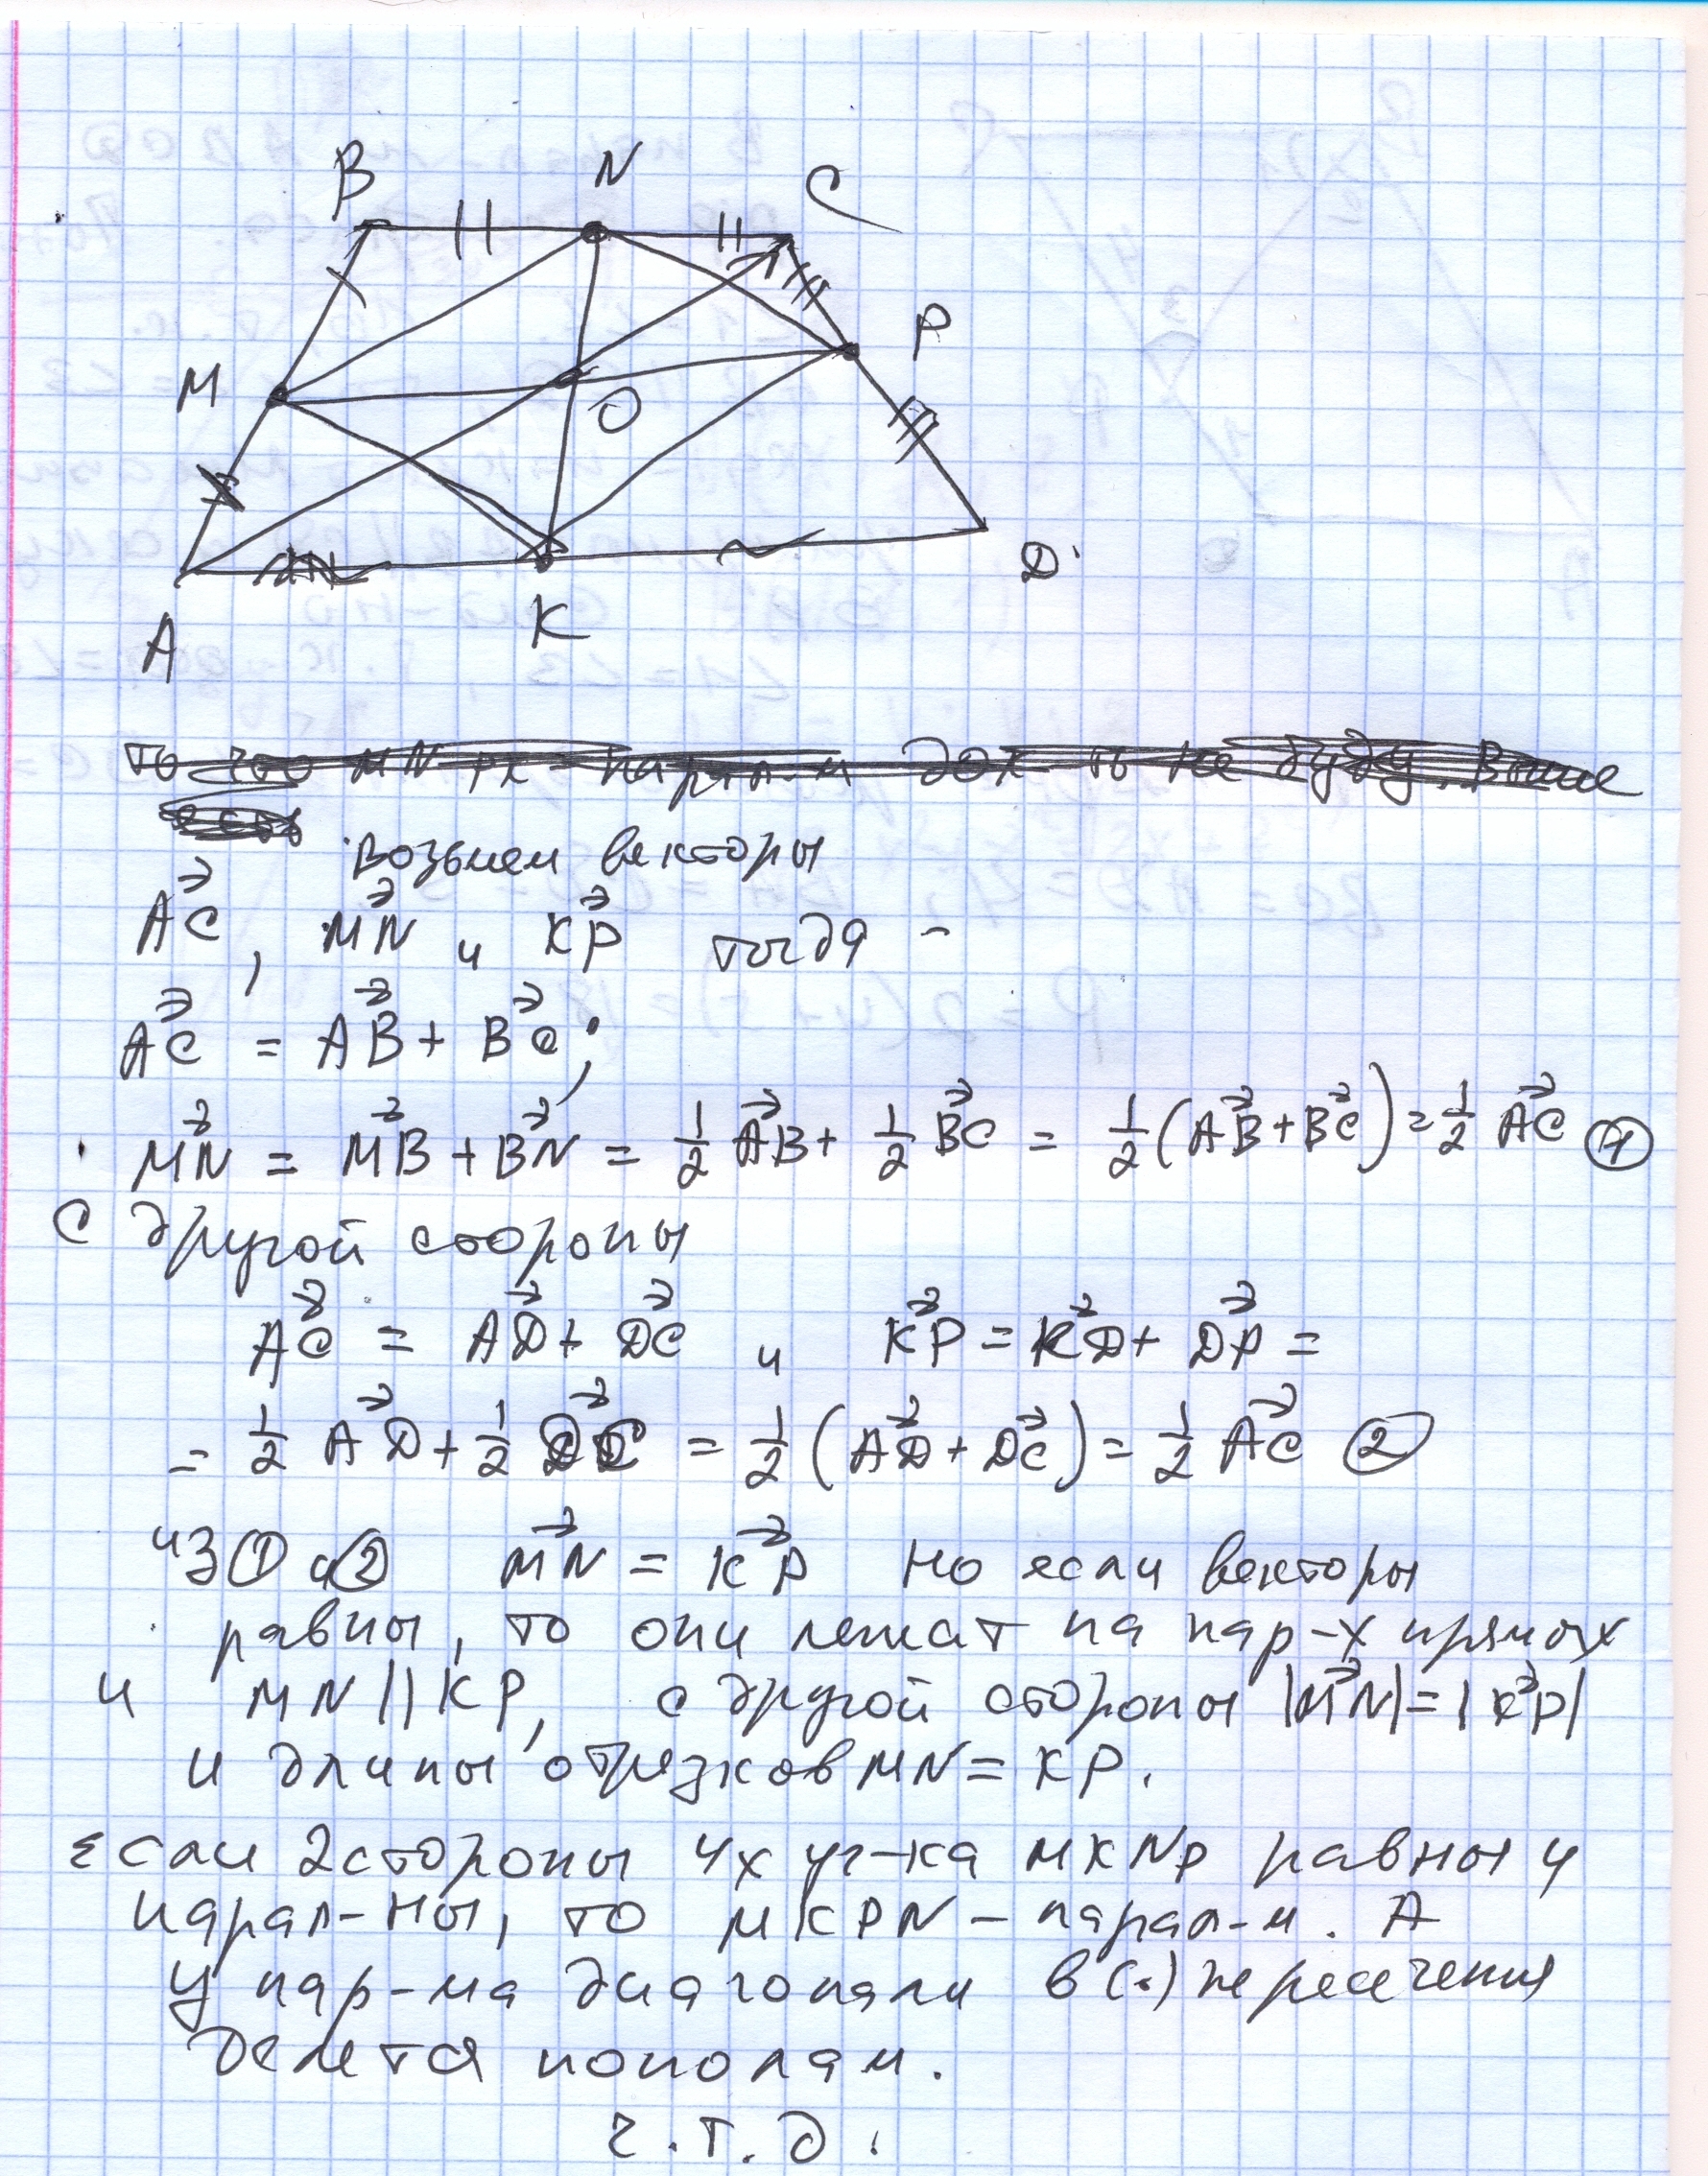 B N C
M P
O
A K D
то что MNPK - парал-м док-ть не буду. Выше
есть возьмем векторы
AC, MN и KP тогда -
AC = AB + BC;
MN = MB + BN = 1/2 AB + 1/2 BC = 1/2 (AB + BC) = 1/2 AC ①
С другой стороны
AC = AD + DC и KP = KD + DP =
= 1/2 AD + 1/2 DC = 1/2 (AD + DC) = 1/2 AC ②
из ① и ② MN = KP но если векторы
равны, то они лежат на пар-х прямых
и MN || KP, с другой стороны |MN| = |KP|
и длины отрезков MN = KP.
если 2 стороны 4х уг-ка MKNP равны и
парал-ны, то MKPN - парал-м. А
у пар-ма диагонали в (.) пересечения
делется пополам.
ч.т.д.